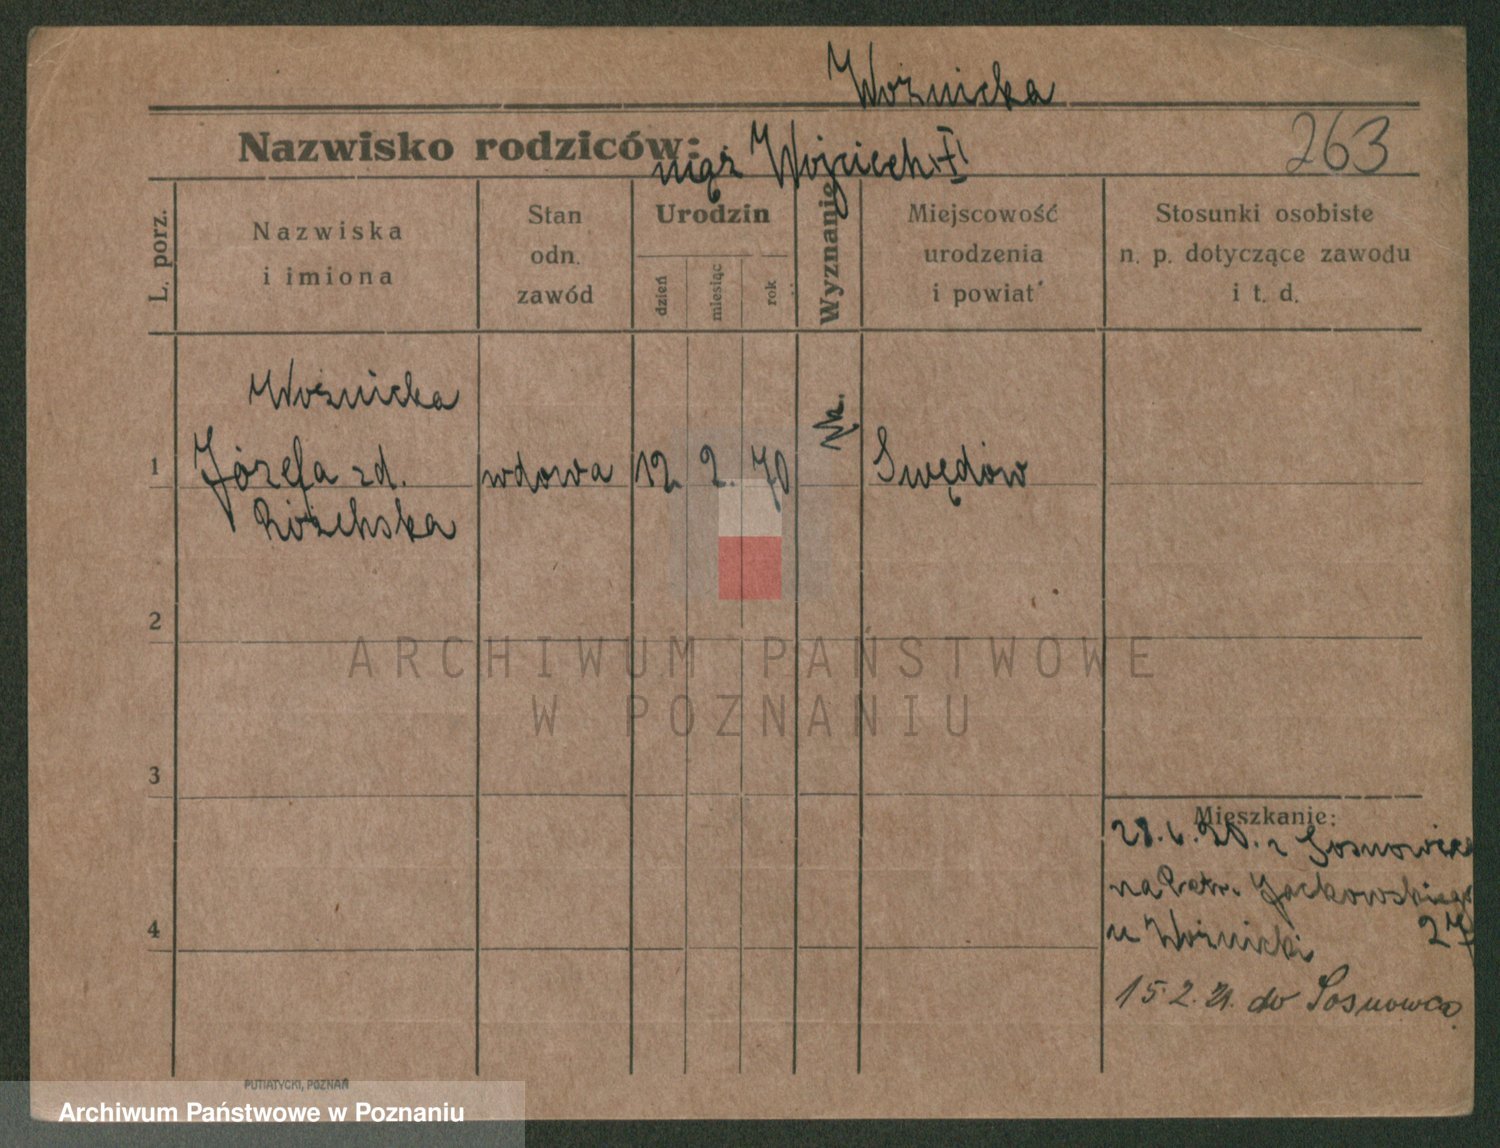 Woźnicka
Nazwisko rodziców: mąż Wojciech
263
L. porz.
Nazwiska
i imiona
Stan
odn.
zawód
Urodzin
dzień
miesiąc
rok
Wyznanie
Miejscowość
urodzenia
i powiat
Stosunki osobiste
n. p. dotyczące zawodu
i t. d.
Woźnicka
1 Józefa zd. wdowa 12. 2. 70 Swędów
2
ARCHIWUM PAŃSTWOWE
W POZNANIU
3
Mieszkanie:
28.6.20. z
na Jackowskiego
4 u Woźnicki 27
15.2.21. do Sosnowca.
PUTIATYCKI, POZNAŃ
Archiwum Państwowe w Poznaniu